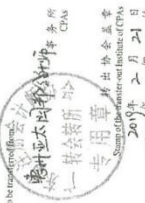 o be transferred from
事务所
CPAs
转会转所
专用章
转出协会盖章
Stamp of the transfer-out Institute of CPAs
2019年 2月 21日